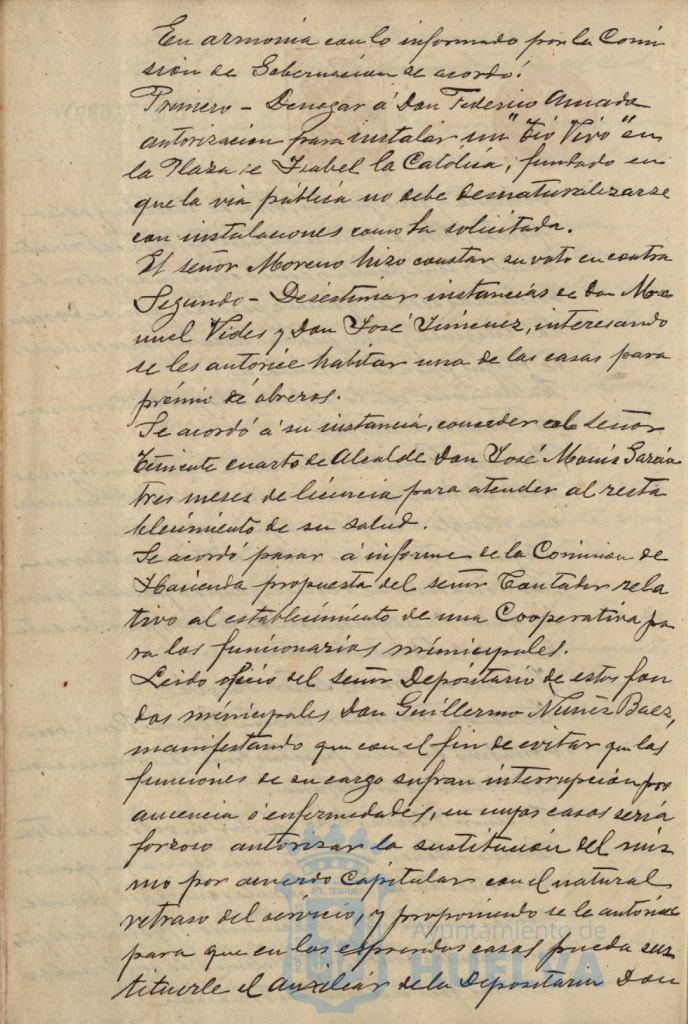 En armonía con lo informado por la Comi
sión de Gobernación se acordó:
Primero - Denegar á Don Federico Amada
autorización para instalar un "Tío Vivo" en
la Plaza de Isabel la Católica, fundado en
que la vía pública no debe desnaturalizarse
con instalaciones como la solicitada.
El señor Moreno hizo constar su voto en contra
Segundo - Desestimar instancias de Don Ma
nuel Vides y Don José Jiménez, interesando
se les autorice habitar una de las casas para
prémio de obreros.
Se acordó á su instancia, conceder al señor
Teniente cuarto de Alcalde Don José Monís García
tres meses de licencia para atender al resta
blecimiento de su salud.
Se acordó pasar á informe de la Comisión de
Hacienda propuesta del señor Contador rela
tivo al establecimiento de una Cooperativa pa
ra los funcionarios municipales.
Leido oficio del señor Depositario de estos fon
dos municipales Don Guillermo Núnez Baez,
manifestando que con el fin de evitar que las
funciones de su cargo sufran interrupción por
aucencia ó enfermedades, en cuyos casos sería
forzoso autorizar la sustitución del mis
mo por acuerdo Capitular con el natural
retraso del servicio, y proponiendo se le autorice
para que en los expresados casos pueda sus
tituirle el Auxiliar de la Depositaria Don
Ayuntamiento de
HUELVA